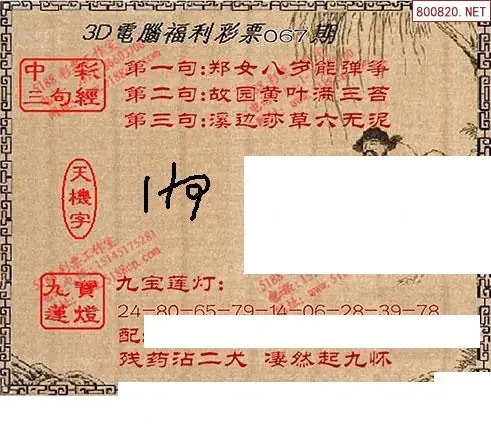 800820.NET
3D電腦福利彩票067期
中彩
三句經
第一句:郑女八岁能弹筝
第二句:故园黄叶满三苔
第三句:溪边莎草六无泥
天機字
九寶
蓮燈
九宝莲灯:
24-80-65-79-14-06-28-39-78
配:
残药沾二犬 凄然起九怀